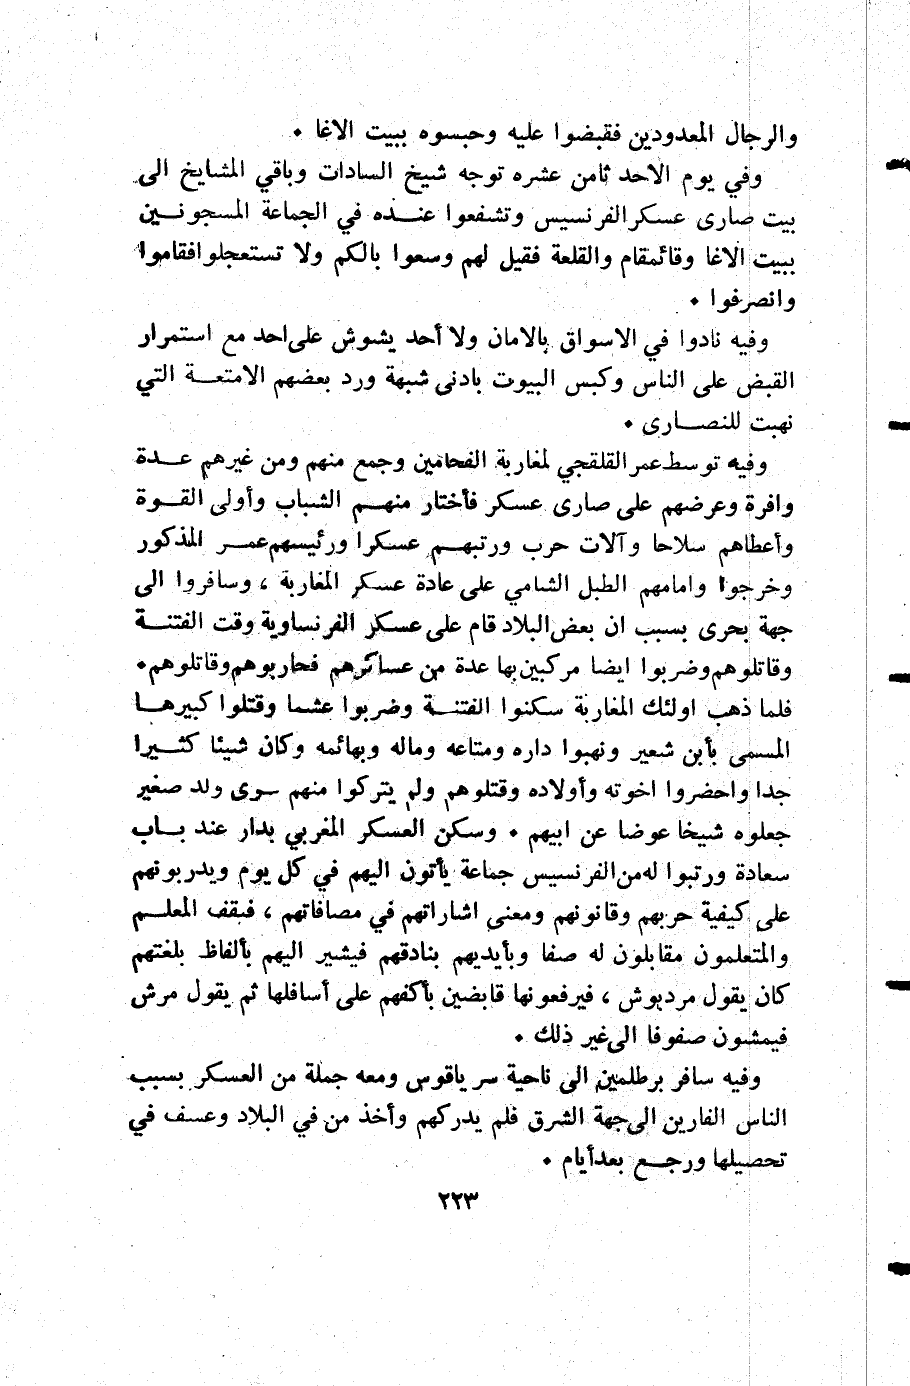 والرجال المعدودين فقبضوا عليه وحبسوه ببيت الاغا ٠
وفي يوم الاحد ثامن عشره توجه شيخ السادات وباقي المشايخ الى
بيت صارى عسكر الفرنسيس وتشفعوا عنده في الجماعة المسجونين
ببيت الاغا وقائمقام والقلعة فقيل لهم وسعوا بالكم ولا تستعجلوا فقاموا
وانصرفوا ٠
وفيه نادوا في الاسواق بالامان ولا أحد يشوش على احد مع استمرار
القبض على الناس وكبس البيوت بادنى شبهة ورد بعضهم الامتعة التي
نهبت للنصارى ٠
وفيه توسط عمر القلقجي لمغاربة الفحامين وجمع منهم ومن غيرهم عدة
وافرة وعرضهم على صارى عسكر فأختار منهم الشباب وأولى القوة
وأعطاهم سلاحا وآلات حرب ورتبهم عسكرا ورئيسهم عمر المذكور
وخرجوا وامامهم الطبل الشامي على عادة عسكر المغاربة ، وسافروا الى
جهة بحرى بسبب ان بعض البلاد قام على عسكر الفرنساوية وقت الفتنة
وقاتلوهم وضربوا ايضا مركبين بها عدة من عساكرهم فحاربوهم وقاتلوهم ٠
فلما ذهب اولئك المغاربة سكنوا الفتنة وضربوا عشما وقتلوا كبيرها
المسمى بأبن شعير ونهبوا داره ومتاعه وماله وبهائمه وكان شيئا كثيرا
جدا واحضروا اخوته وأولاده وقتلوهم ولم يتركوا منهم سوى ولد صغير
جعلوه شيخا عوضا عن ابيهم ٠ وسكن العسكر المغربي بدار عند باب
سعادة ورتبوا له من الفرنسيس جماعة يأتون اليهم في كل يوم ويدربونهم
على كيفية حربهم وقانونهم ومعنى اشاراتهم في مصافاتهم ، فيقف المعلم
والمتعلمون مقابلون له صفا وبأيديهم بنادقهم فيشير اليهم بألفاظ بلغتهم
كان يقول مردبوش ، فيرفعونها قابضين بأكفهم على أسافلها ثم يقول مرش
فيمشون صفوفا الى غير ذلك ٠
وفيه سافر برطلمين الى ناحية سرياقوس ومعه جملة من العسكر بسبب
الناس الفارين الى جهة الشرق فلم يدركهم وأخذ من في البلاد وعسف في
تحصيلها ورجع بعد أيام ٠
٢٢٣